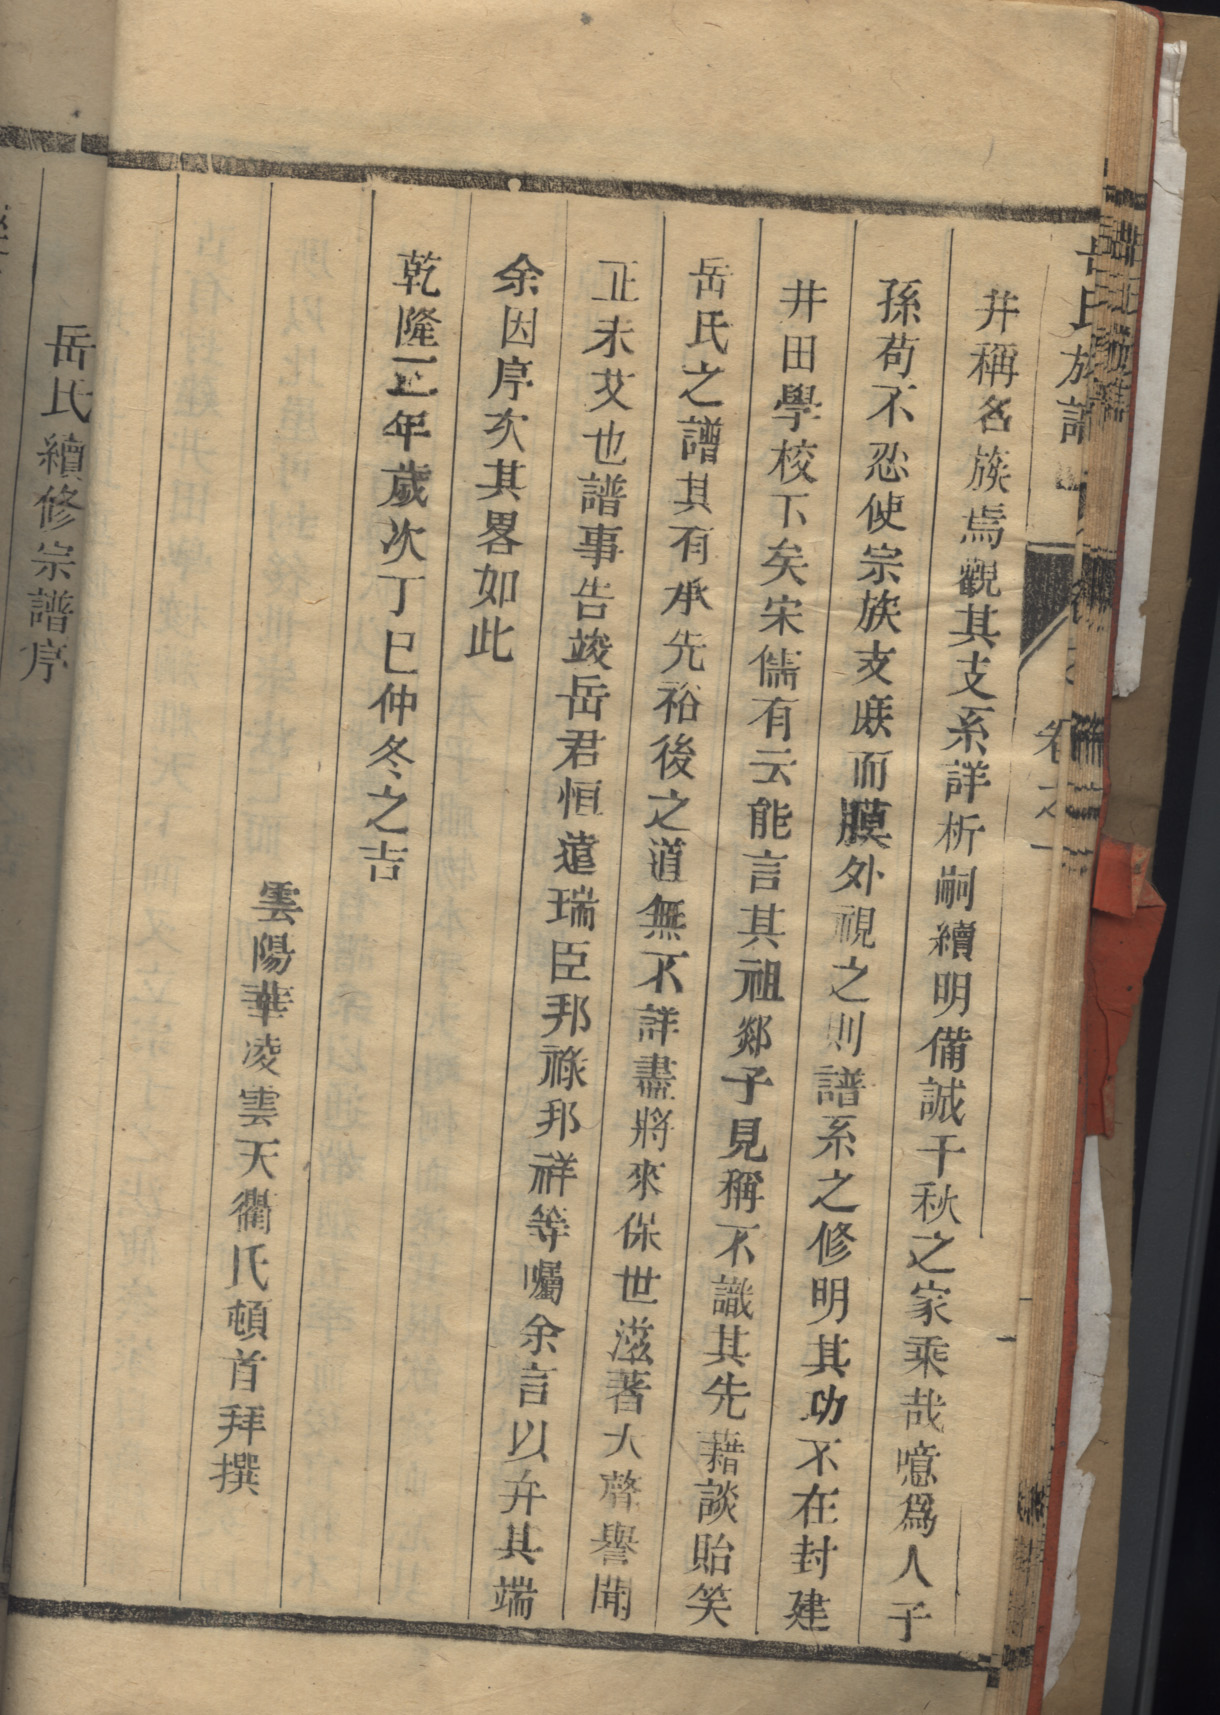 岳氏族譜
卷之一
幷稱名族焉觀其支系詳析嗣續明備誠千秋之家乘哉噫爲人子
孫苟不忍使宗族支庶而膜外視之則譜系之修明其功不在封建
井田學校下矣宋儒有云能言其祖郯子見稱不識其先藉談貽笑
岳氏之譜其有承先裕後之道無不詳盡將來保世滋著大聲譽聞
正未艾也譜事告竣岳君恒遠瑞臣邦祿邦祥等囑余言以弁其端
余因序次其畧如此
乾隆二年歲次丁巳仲冬之吉
雲陽華凌雲天衢氏頓首拜撰
岳氏續修宗譜序